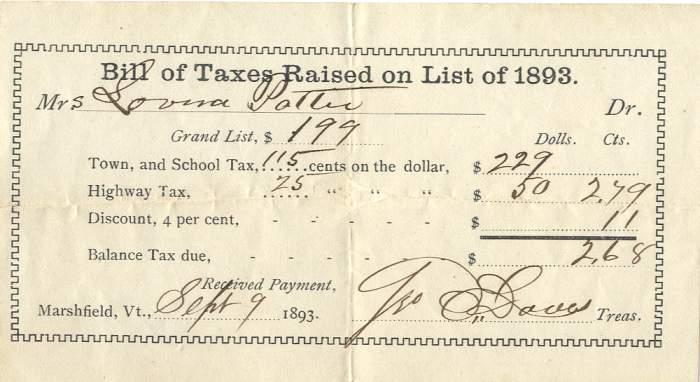 Bill of Taxes Raised on List of 1893.
Mrs Lovina Potter Dr.
Grand List, $ 199 Dolls. Cts.
Town, and School Tax, 115 cents on the dollar, $ 229
Highway Tax, 25 " " " $ 50 2,79
Discount, 4 per cent, - - - - - $ 11
Balance Tax due, - - - - $ 2,68
Received Payment,
Marshfield, Vt., Sept 9 1893. Geo Treas.